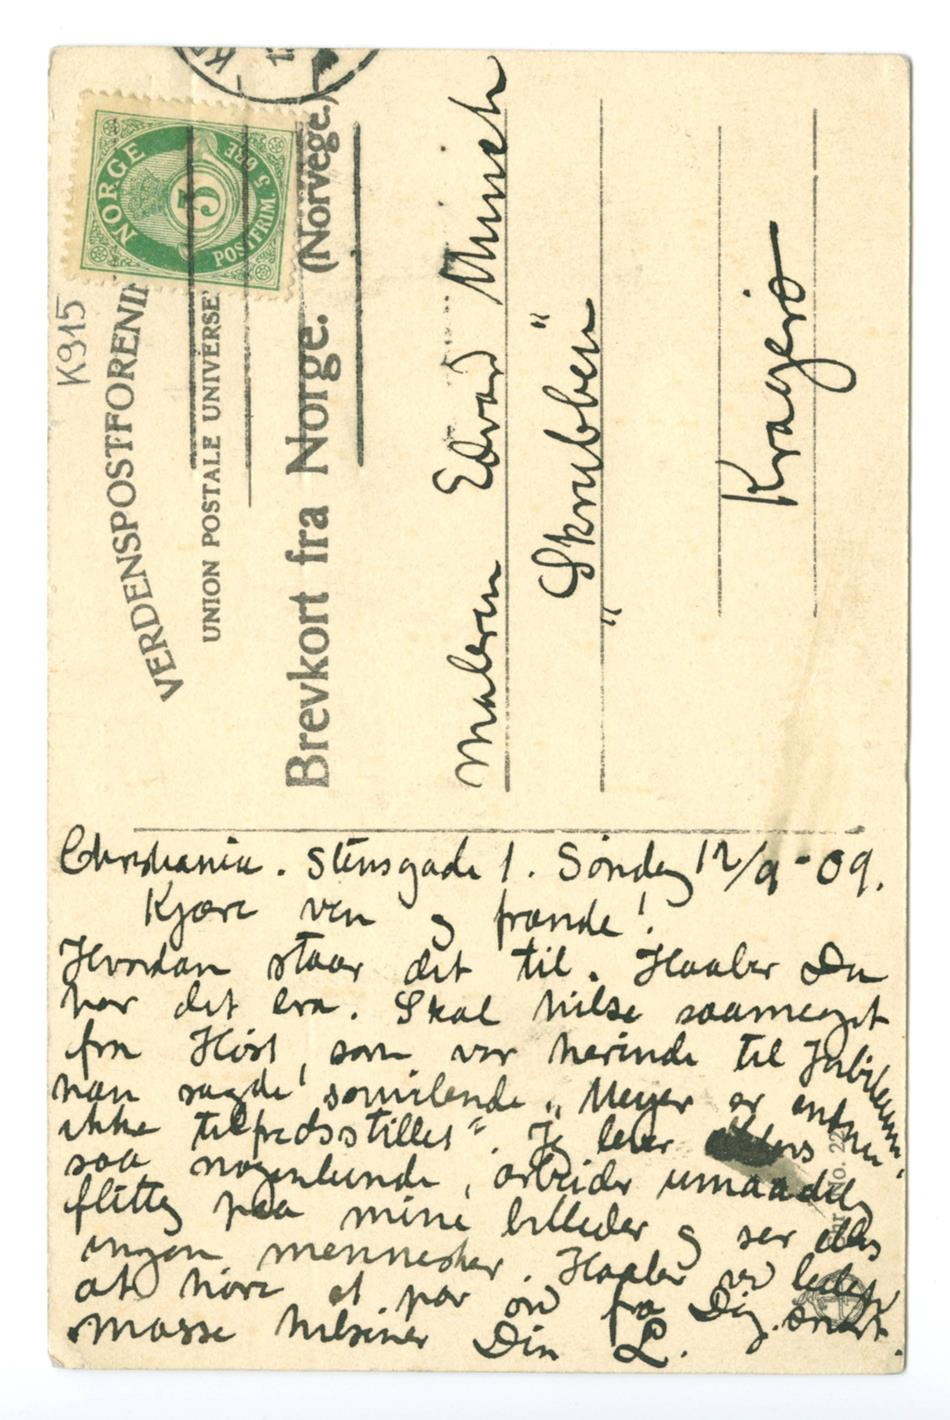 K915
NORGE
5
POSTFRIM. 5 ØRE
VERDENSPOSTFORENIN
UNION POSTALE UNIVERSE
Brevkort fra Norge. (Norvege.)
Maleren Edvard Munch
"Skrubben"
Kragerø
Christiania. Stensgade 1. Søndag 12/9-09.
Kjære ven og frænde!
Hvordan staar det til. Haaber Du
har det bra. Skal hilse saameget
fra Høst, som var herinde til Jubilæum,
han sagde smilende "Meyer er endnu
ikke tilfredsstillet". Jeg lever ellers
saa nogenlunde, arbeider umaadelig
flittig paa mine billeder og ser ellers
ingen mennesker. Haaber ved leilegh.
at høre et par ord fra Dig snart.
Masse hilsener Din L.
No. 22